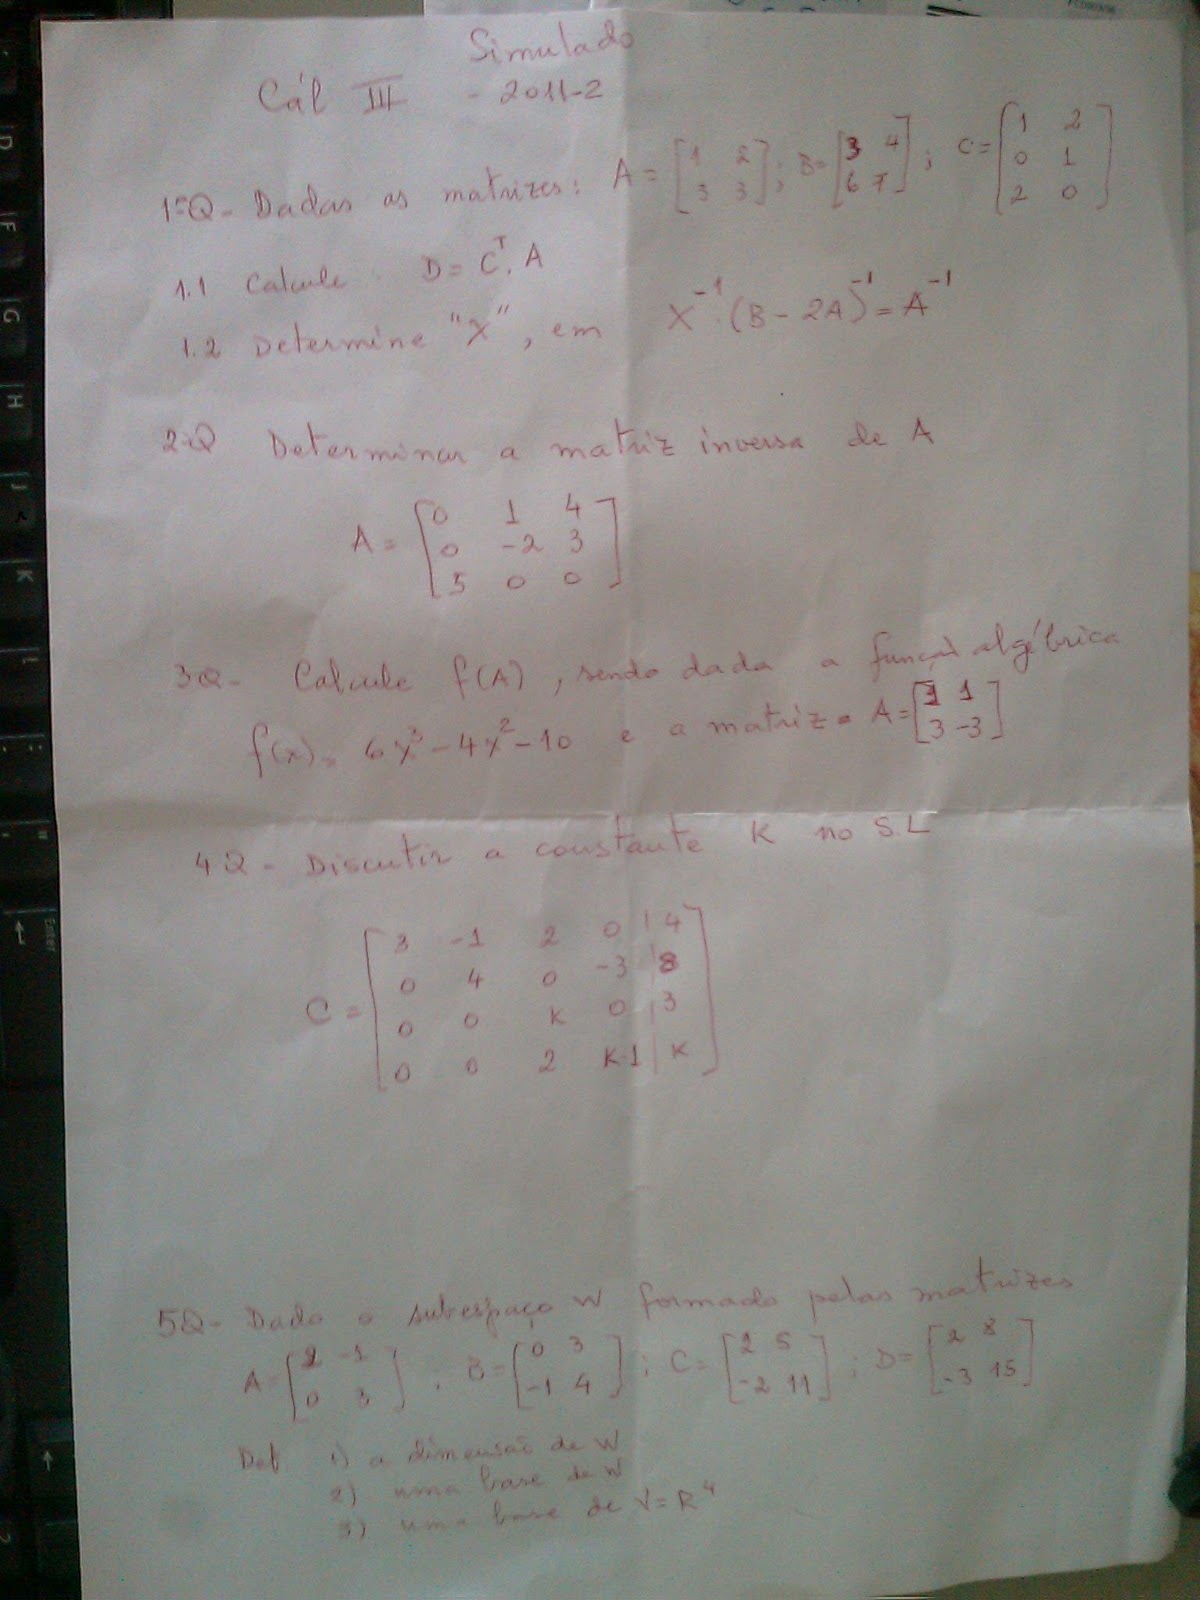 Simulado
Cál III - 2011-2
1ªQ- Dadas as matrizes: A = [1 2; 3 3]; B = [3 4; 6 7]; C = [1 2; 0 1; 2 0]
1.1 Calcule D = C^T. A
1.2 Determine "X", em X^-1.(B - 2A)^-1 = A^-1
2ªQ Determinar a matriz inversa de A
A = [0 1 4; 0 -2 3; 5 0 0]
3Q- Calcule f(A), sendo dada a função algébrica
f(x) = 6x^3 - 4x^2 - 10 e a matriz A = [1 1; 3 -3]
4Q - Discutir a constante K no S.L
C = [3 -1 2 0 | 4; 0 4 0 -3 | 8; 0 0 K 0 | 3; 0 0 2 K-1 | K]
5Q- Dado o subespaço W formado pelas matrizes
A = [2 -1; 0 3], B = [0 3; -1 4]; C = [2 5; -2 11]; D = [2 8; -3 15]
Det 1) a dimensão de W
2) uma base de W
3) uma base de V = R^4
Enter
D
F
G
H
J
K
L